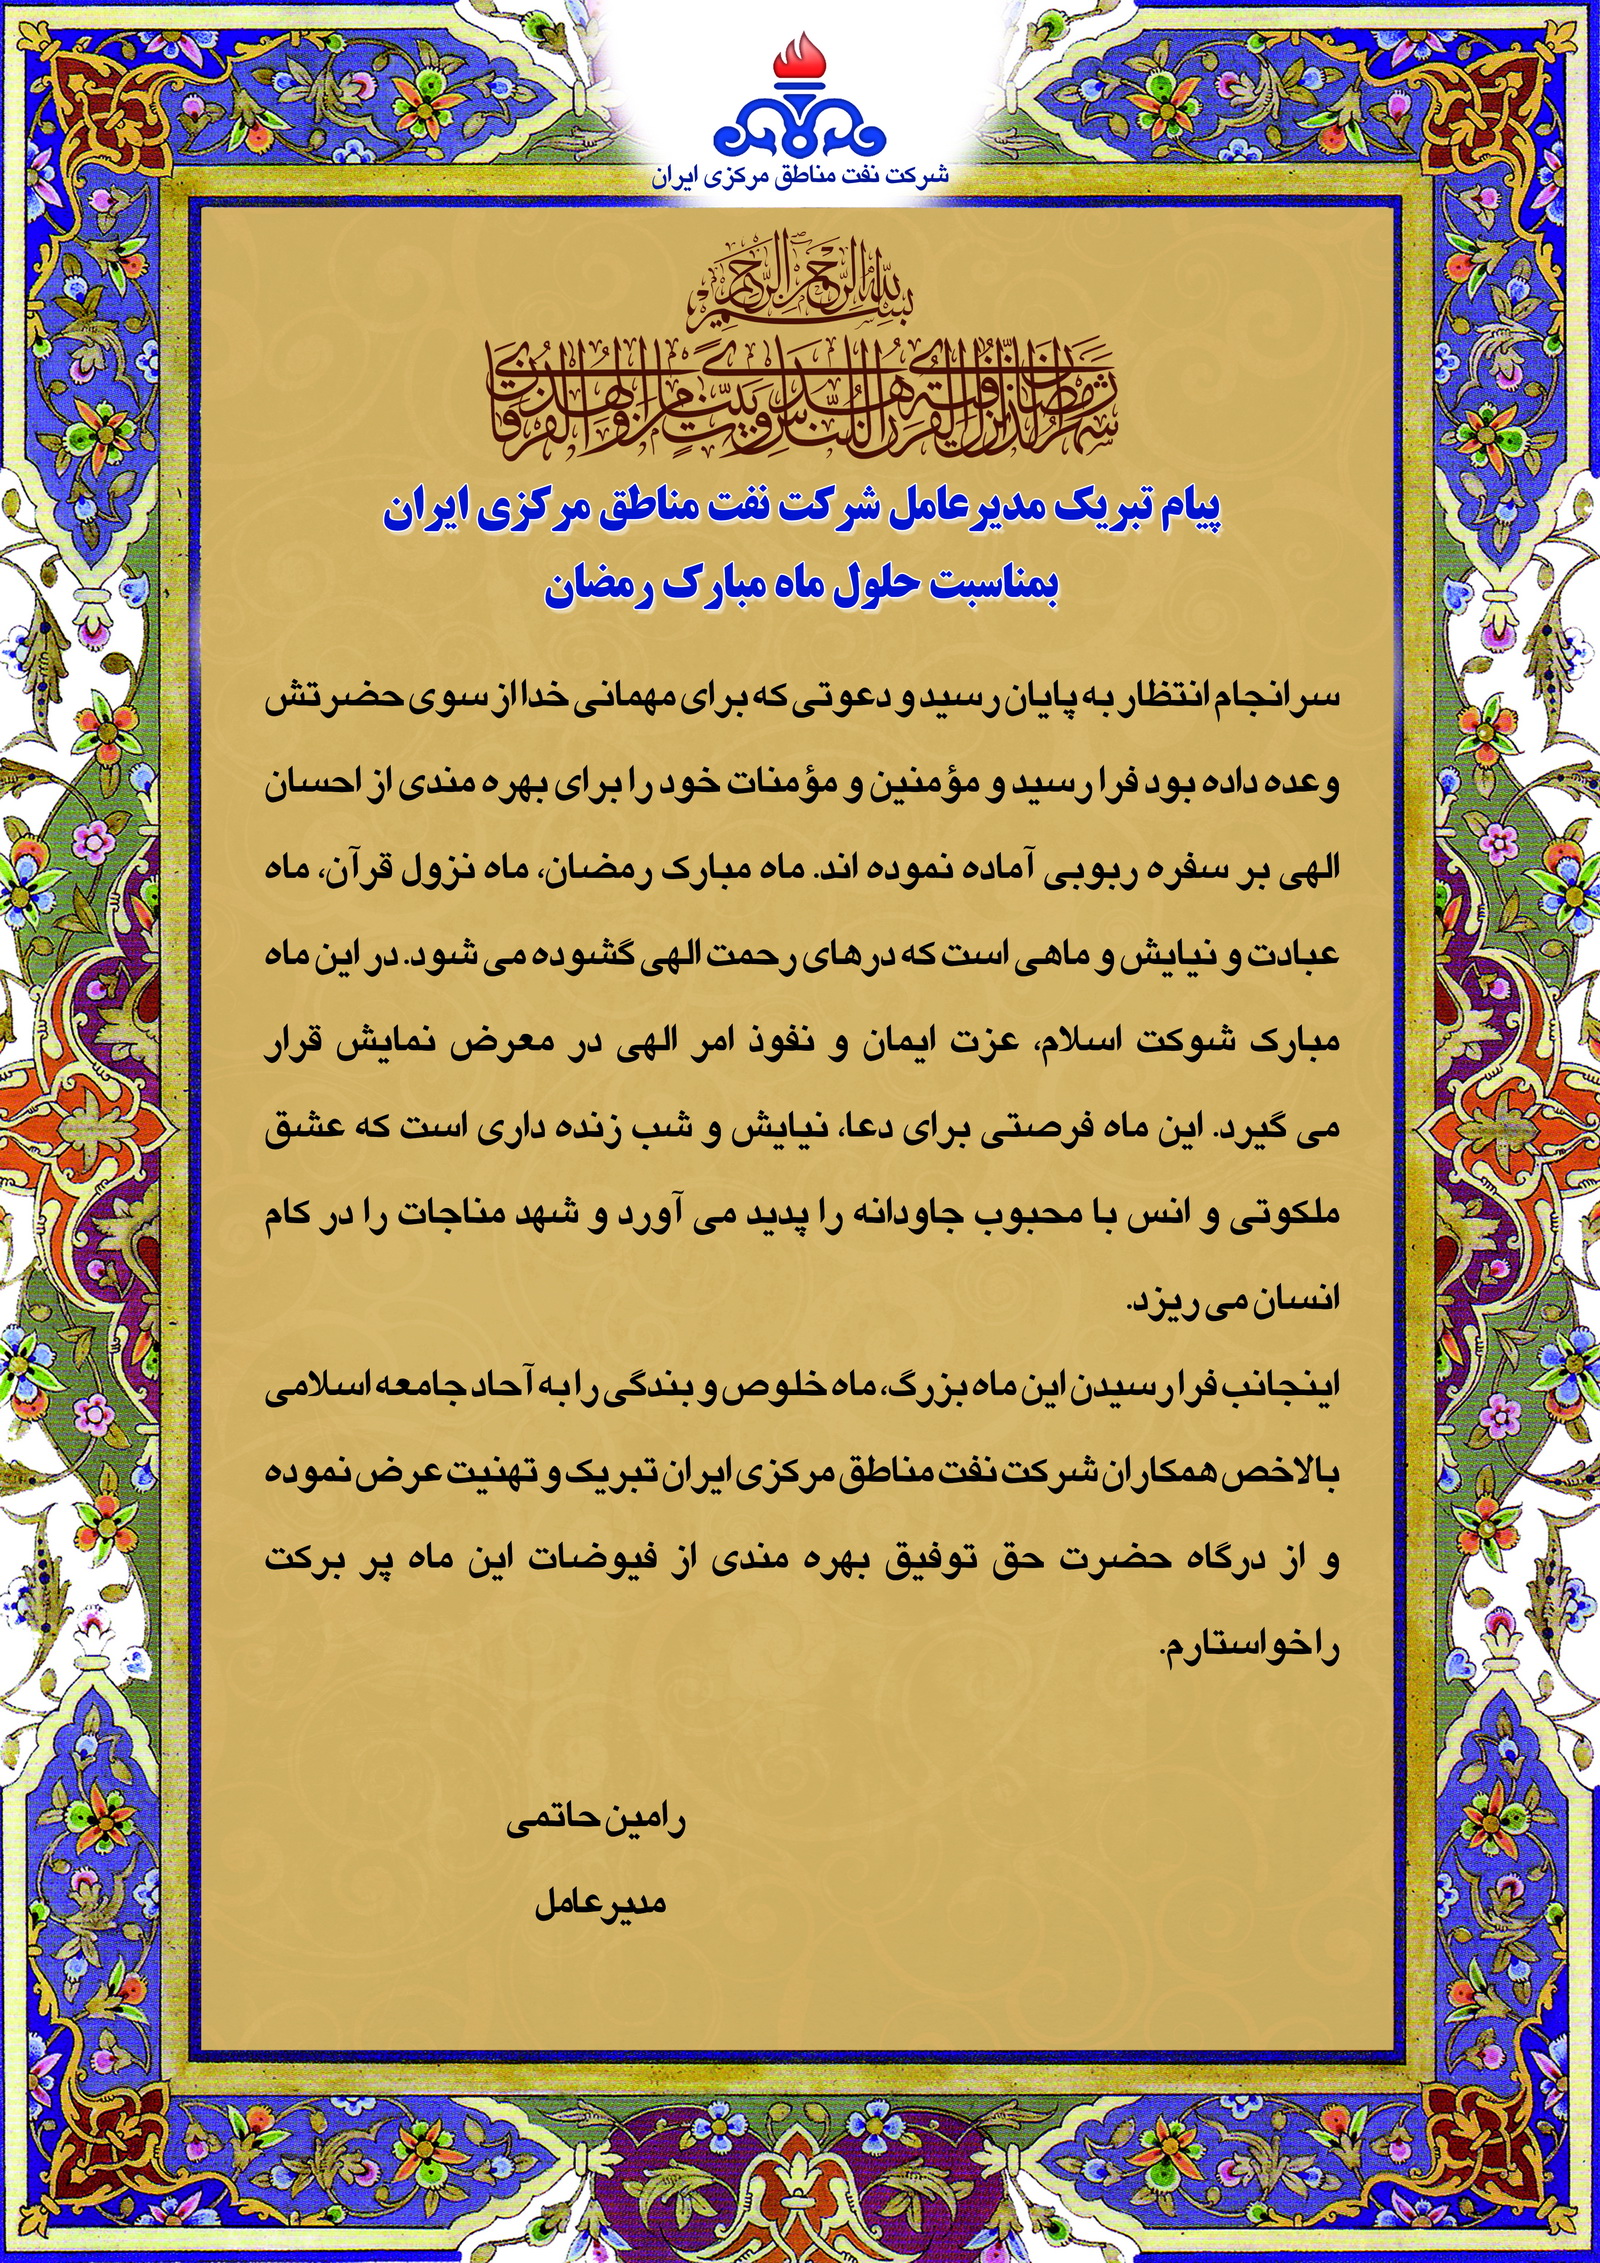 شرکت نفت مناطق مرکزی ایران
بسم الله الرحمن الرحیم
شهر رمضان الذی انزل فیه القرآن هدی للناس و بینات من الهدی و الفرقان
پیام تبریک مدیرعامل شرکت نفت مناطق مرکزی ایران
بمناسبت حلول ماه مبارک رمضان
سرانجام انتظار به پایان رسید و دعوتی که برای مهمانی خدا از سوی حضرتش
وعده داده بود فرا رسید و مؤمنین و مؤمنات خود را برای بهره مندی از احسان
الهی بر سفره ربوبی آماده نموده اند. ماه مبارک رمضان، ماه نزول قرآن، ماه
عبادت و نیایش و ماهی است که درهای رحمت الهی گشوده می شود. در این ماه
مبارک شوکت اسلام، عزت ایمان و نفوذ امر الهی در معرض نمایش قرار
می گیرد. این ماه فرصتی برای دعا، نیایش و شب زنده داری است که عشق
ملکوتی و انس با محبوب جاودانه را پدید می آورد و شهد مناجات را در کام
انسان می ریزد.
اینجانب فرا رسیدن این ماه بزرگ، ماه خلوص و بندگی را به آحاد جامعه اسلامی
بالاخص همکاران شرکت نفت مناطق مرکزی ایران تبریک و تهنیت عرض نموده
و از درگاه حضرت حق توفیق بهره مندی از فیوضات این ماه پر برکت
را خواستارم.
رامین حاتمی
مدیرعامل